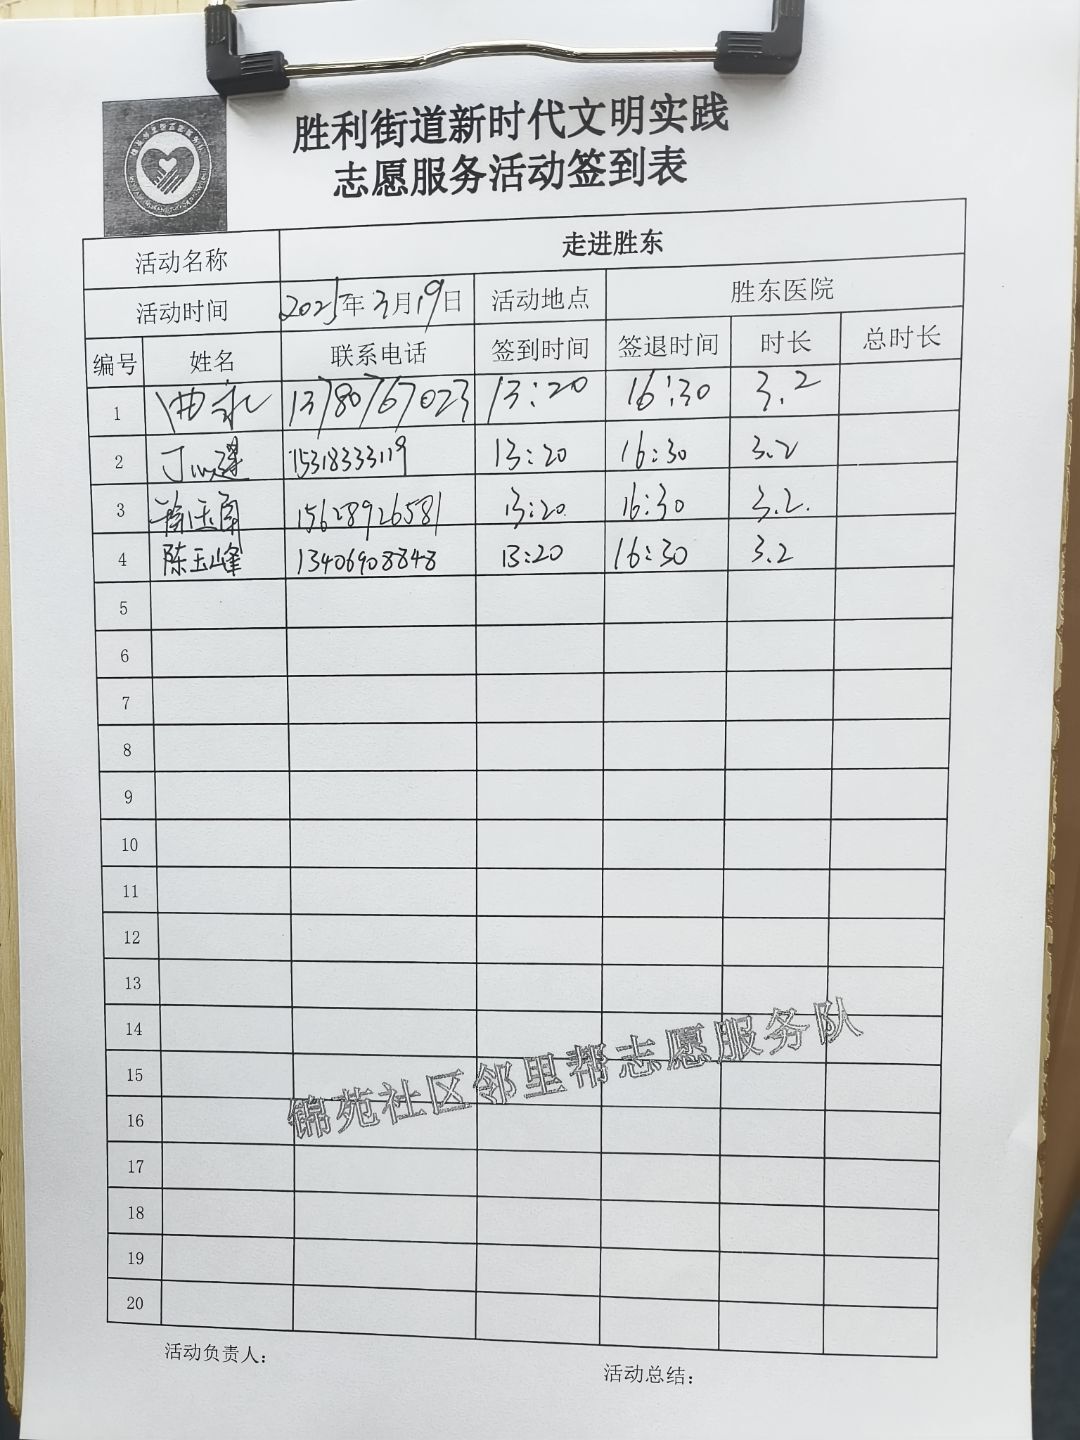 胜利街道新时代文明实践
志愿服务活动签到表
活动名称 走进胜东
活动时间 2025年3月19日 活动地点 胜东医院
编号 姓名 联系电话 签到时间 签退时间 时长 总时长
1 曲永 13780767023 13:20 16:30 3.2
2 丁以建 15318333119 13:20 16:30 3.2
3 15628926581 13:20 16:30 3.2
4 陈玉峰 13406908848 13:20 16:30 3.2
5
6
7
8
9
10
11
12
13
14
15
16
17
18
19
20
锦苑社区邻里帮志愿服务队
活动负责人：
活动总结：